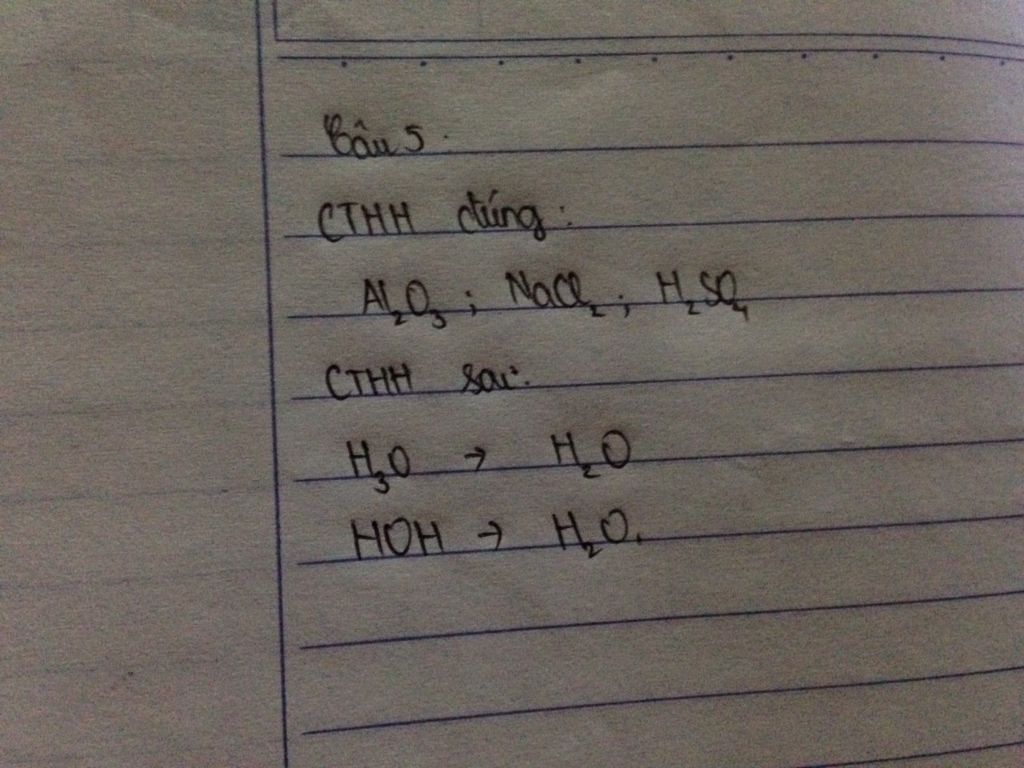 Câu 5.
CTHH đúng:
Al₂O₃; NaCl₂; H₂SO₄
CTHH sai:
H₃O → H₂O
HOH → H₂O.